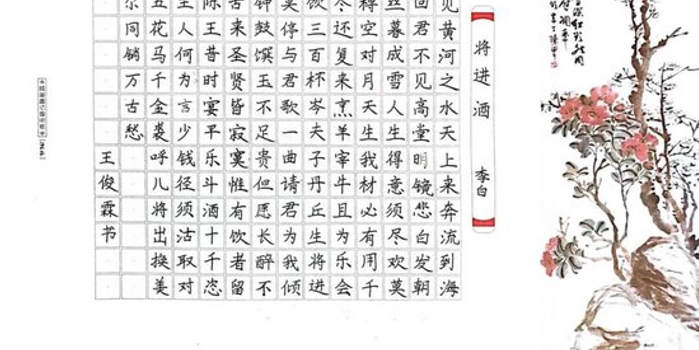 将进酒 李白
见黄河之水天上来奔流到海
回君不见高堂明镜悲白发朝
丝暮成雪人生得意须尽欢莫
樽空对月天生我材必有用千
尽还复来烹羊宰牛且为乐会
饮三百杯岑夫子丹丘生将进
停与君歌一曲请君为我倾
钟鼓馔玉不足贵但愿长醉不
古来圣贤皆寂寞惟有饮者留
陈王昔时宴平乐斗酒十千恣
主人何为言少钱径须沽取对
五花马千金裘呼儿将出换美
尔同销万古愁
王俊霖书